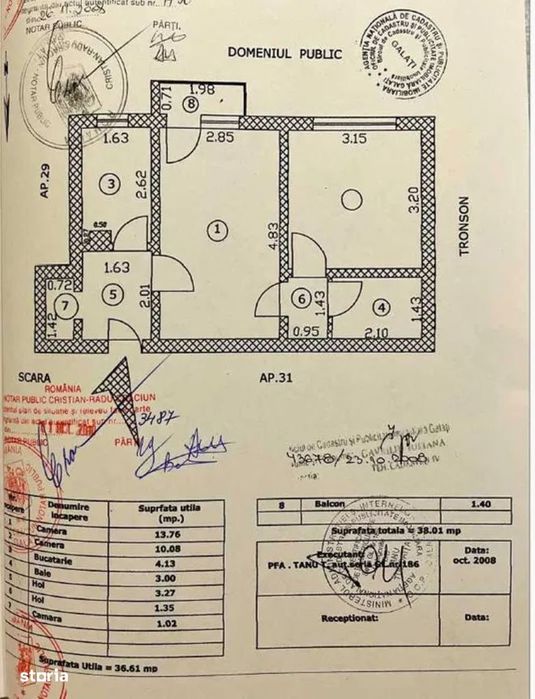 26.11.2008
NOTAR PUBLIC
PĂRŢI,
DOMENIUL PUBLIC
AGENŢIA NAŢIONALĂ DE CADASTRU ŞI PUBLICITATE IMOBILIARĂ
GALAŢI
1.98
0.71
8
1.63
2.85
3.15
AP.29
3
2.62
1
4.83
3.20
TRONSON
0.50
1.63
0.72
7
5
2.01
1.42
6
1.43
4
1.43
0.95
2.10
SCARA
AP.31
ROMÂNIA
NOTAR PUBLIC CRISTIAN-RADU
3487
NOTAR PUBLIC
PĂRŢI
Denumire incapere
Suprfata utila (mp.)
1 Camera 13.76
2 Camera 10.08
3 Bucatarie 4.13
Baie 3.00
Hol 3.27
Hol 1.35
7 Camara 1.02
Suprafata Utila = 36.61 mp
8 Balcon 1.40
Suprafata totala = 38.01 mp
Executant:
PFA . TANU T. aut.seria GL nr.186
Data:
oct. 2008
Receptionat:
Data:
storia